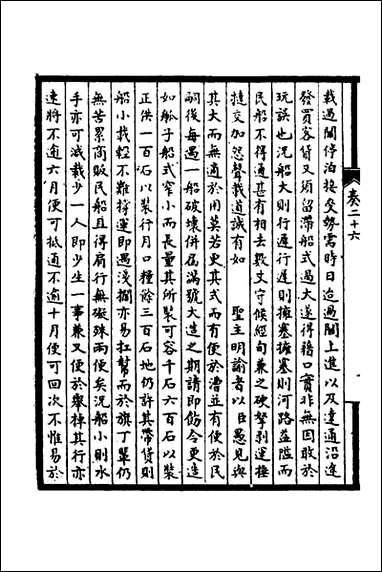 奏二十六
載過閘停泊接癸勞需時日迨過閘上進以及達通沿途
發買客貨又須留滯船式過大遂得藉口實非無因敢於
玩誤也況船大則行遲行遲則擁塞擁塞則河路益隘而
民船不得通甚有相去數丈守候經旬兼之硪拏剝運捶
撻交加怨聲載道誠有如 聖主明諭者以臣愚見與
其大而無適於用莫若更其式而有便於漕並有便於民
嗣後每遇一船破壞併屆滿號大造之期請即飭令更造
如艍子船式窄小而長量其所裝可容千石六百石以裝
正供一百石以裝行月口糧餘三百石地仍許其帶貨則
船小載輕不難撐運即遇淺擱亦易扛幫而於旗丁單仍
無苦累商販民船且得肩行無礙殊兩便矣況船小則水
手亦可減裁少一人即少生一事兼又便於舉棟其行亦
速將不逾六月便可抵通不逾十月便可回次不惟易於